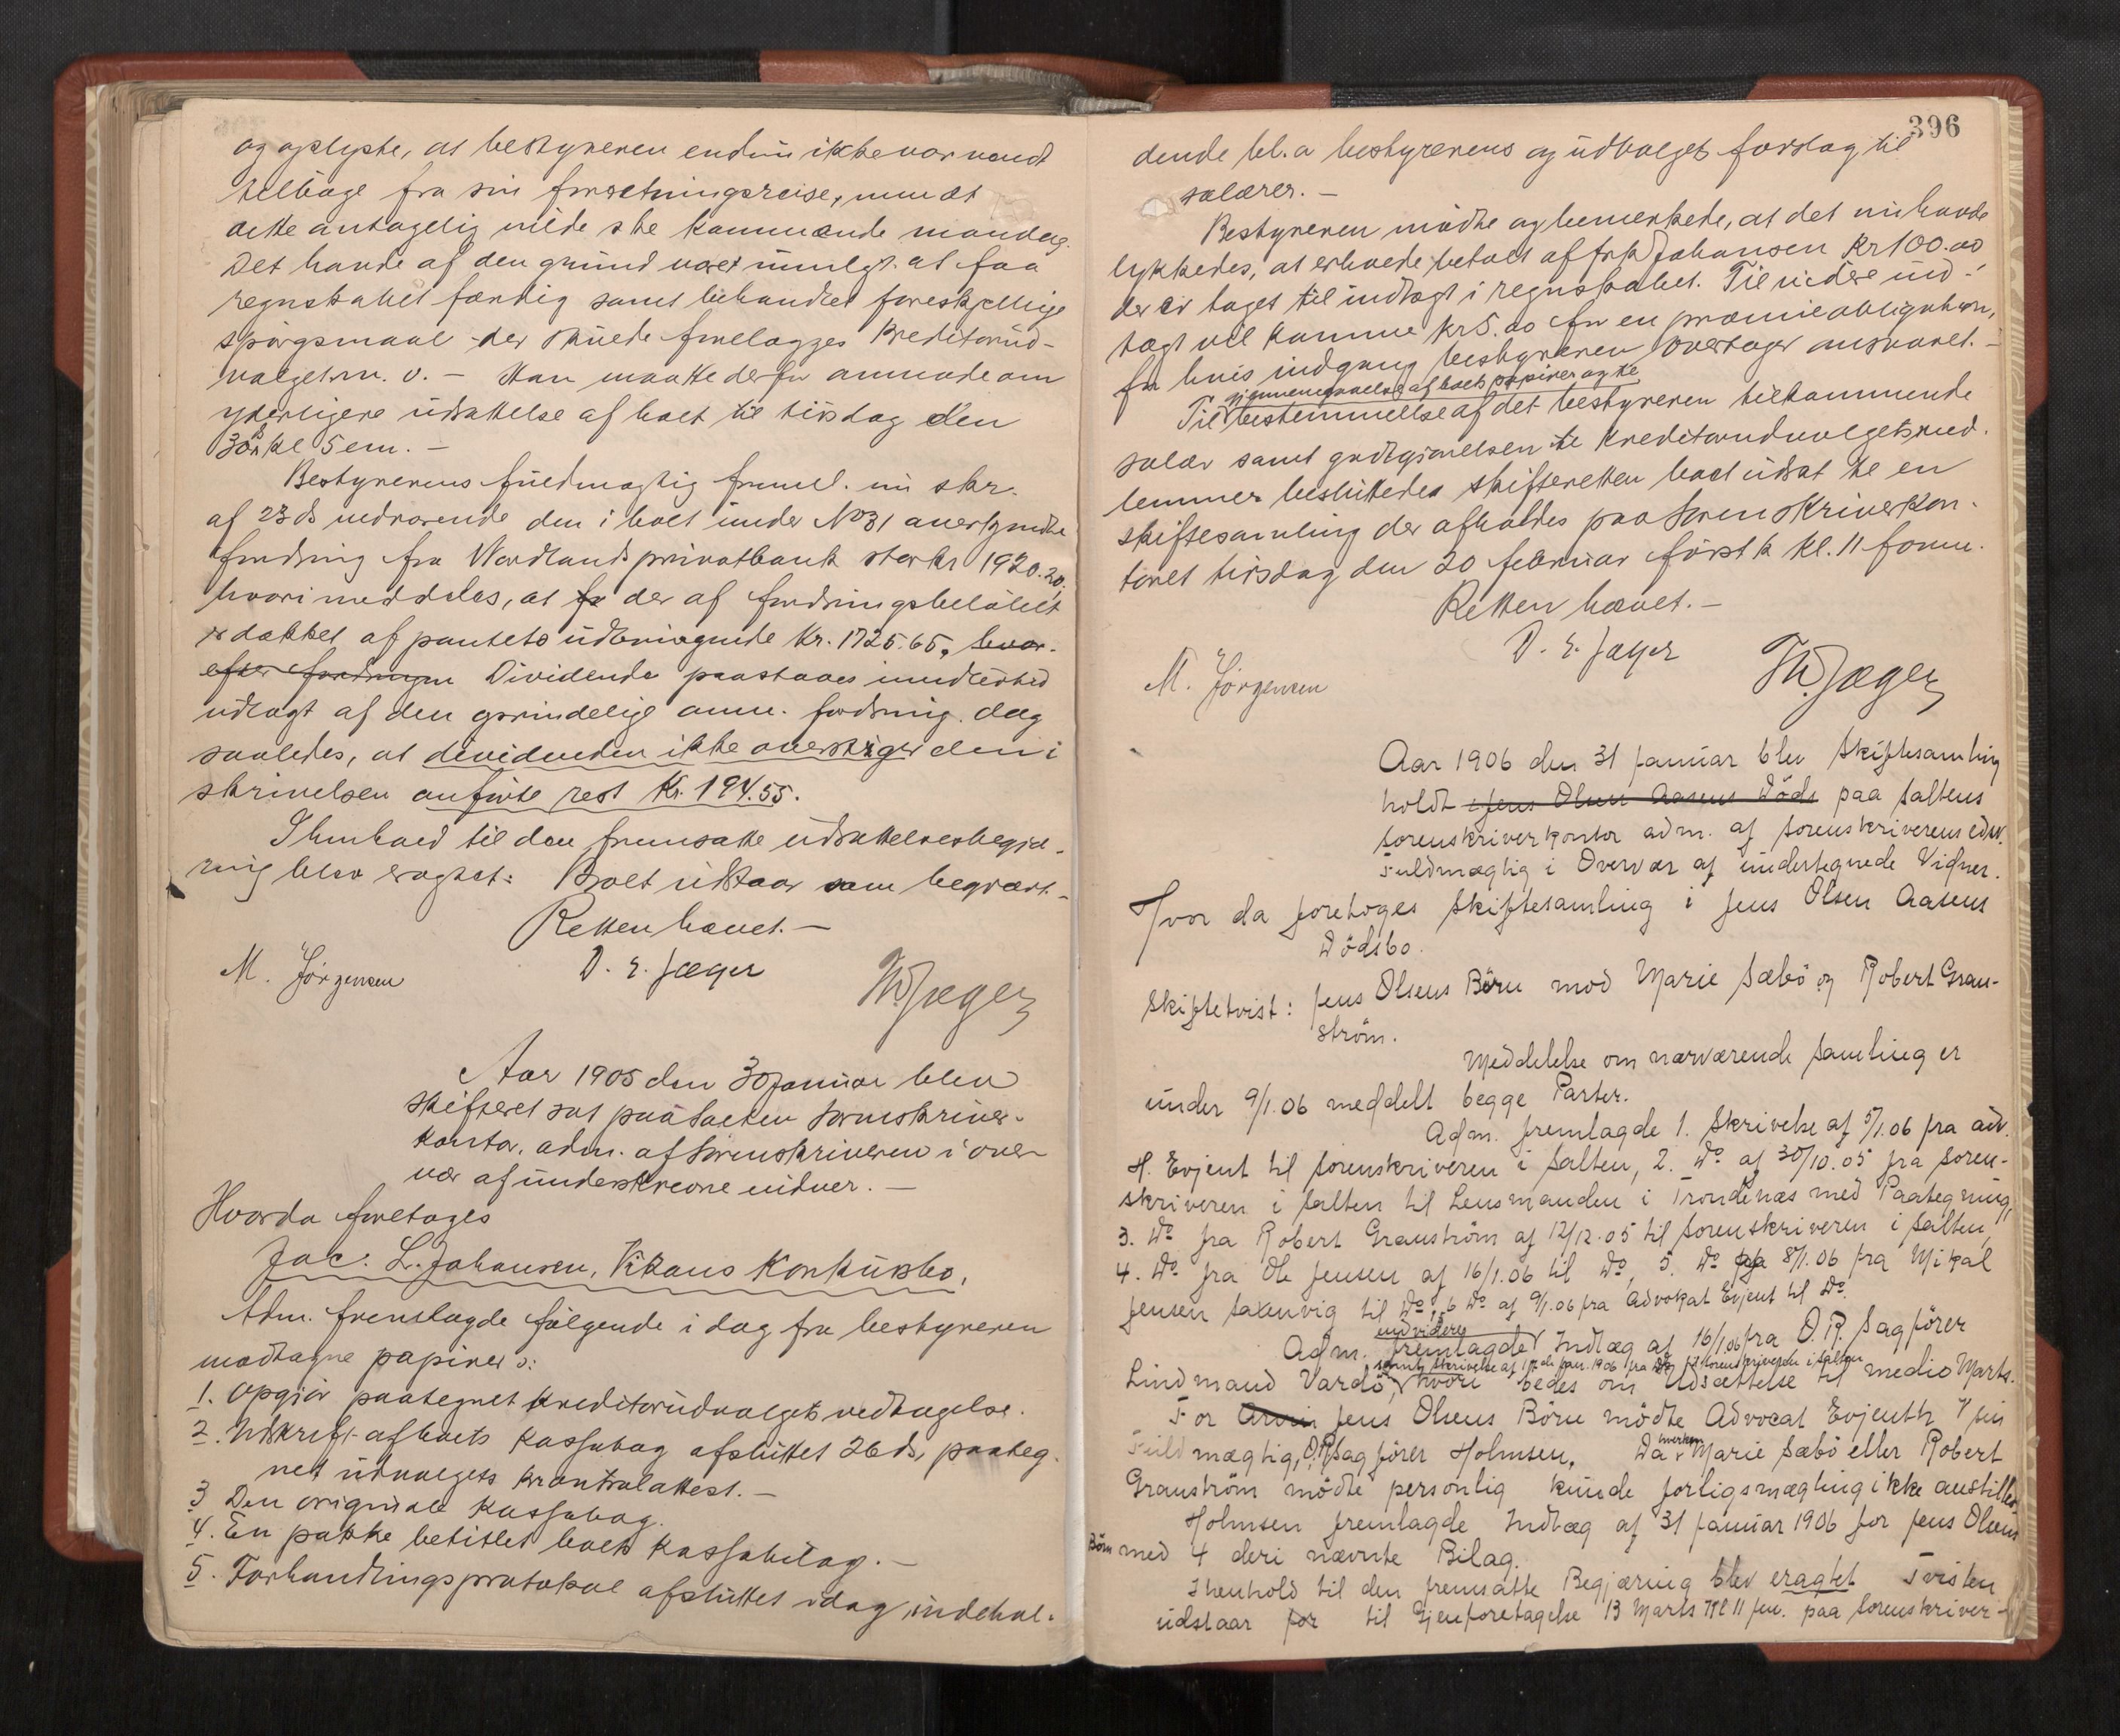 og oplyste, at bestyreren endnu ikke var vendt
tilbage fra sin forretningsreise, men at
dette antagelig vilde ske kommende mandag.
Det havde af den grund været umulgt. at faa
regnskabet færdig samt behandlet foreskjellige
spörgsmaal der skulde forelægges Kreditorud-
valget m. v. – Han maatte derfor anmode om
yderligere udsættelse af boet til tirsdag den
30 kl 5 em. –
Bestyrerens fuldmægtig freml. nu skr.
af 23 ds vedrörende den i boet under No 31 anerkjendte
fordring fra Nordlands privatbank stor kr 1920.20,
hvori meddeles, at der af fordringsbelöbet
er dækket af pantets udbringende Kr. 1725.65, hvor-
efter fordringen Dividende paastaaes imidlertid
udlagt af den oprindelige anm. fordring. dog
saaledes, at dividenden ikke overstiger den i
skrivelsen anförte rest Kr. 194.55.
I henhold til den fremsatte udsættelsesbegjæ-
ring blev eragtet: Boet udstaar som begjært. –
Retten hævet. –
M. Jörgensen D. E. Jæger Th. Jæger
Aar 1905 den 30 Januar blev
skifteret sat paa Salten Sorenskriver-
kontor, adm. af Sorenskriveren i over-
vær af underskrevne vidner. –
Hvor da foretoges
Jac. L. Johansen, Vikans Konkursbo,
Adm. fremlagde fölgende i dag fra bestyreren
modtagne papirer:
1. Opgjör paategnet kreditorudvalgets vedtagelse.
2. Udskrift af boets Kassabog afsluttet 26 ds, paateg-
net udvalgets kontrolattest. –
3 Den originale Kassabog.
4. En pakke betitlet boets Kassabilag. –
5. Forhandlingsprotokol afsluttet idag, indehol-
396
dende bl. a bestyrerens og udvalgets forslag til
salærer. –
Bestyreren mödte og bemerkede, at det nu havde
lykkedes, at erholde betalt af Johansen Kr 100.00
der er taget til indtægt i regnskabet. Til videre ind-
tægt vil komme Kr 5.00 for en præmieobligation,
for hvis indgang bestyreren overtager ansvaret. –
gjennemgaaelse af boets papirer og til
Til bestemmellse af det bestyreren tilkommende
salær samt godtgjörelsen til Kreditorudvalgets med-
lemmer besluttedes skifteretten boet udsat til en
skiftesamling der afholdes paa Sorenskriverkon-
toret tirsdag den 20 februar förstk kl. 11 form.
Retten hævet. –
M. Jörgensen D. E. Jæger Th. Jæger
Aar 1906 den 31 Januar blev Skiftesamling
holdt i Jens Olsen Aasens Döds paa Saltens
Sorenskriverkontor adm. af Sorenskriverens edsv.
Fuldmægtig i Overvær af undertegnede Vidner.
Hvor da foretoges Skiftesamling i Jens Olsen Aasens
Dödsbo.
Skiftetvist: Jens Olsens Börn mod Marie Sæbö og Robert Gran-
ström.
Meddelelse om nærværende Samling er
under 9/1.06 meddelt begge Parter.
Adm. fremlagde 1. Skrivelse af 5/1.06 fra adv.
H. Evjent til Sorenskriveren i Salten, 2. Do af 30/10.05 fra Soren-
skriveren i Salten til Lensmanden i Trondenæs med Paategning,
3. Do fra Robert Granström af 12/12.05 til Sorenskriveren i Salten,
4. Do fra Ole Jensen af 16/1.06 til Do, 5. Do 8/1.06 fra Mikal
Jensen Saxenvig til Do, 6 Do af 9/1.06 fra Advokat Evjent til Do.
endvidere
Adm. fremlagde Indlæg af 16/1.06 fra O.R. Sagförer
samt Skrivelse af 17de Jan. 1906 fra Do til Sorenskriveren i Salten
Lindmand Vardö, hvori bedes om Udsættelse til medio Marts.
For Jens Olsens Börn mödte Advocat Evjenth v/ sin
Fuldmægtig, O.R. Sagförer Holmsen. Da hverken Marie Sæbö eller Robert
Granström mödte personlig kunde forligsmægling ikke anstilles
Holmsen fremlagde Indlæg af 31 Januar 1906 for Jens Olsens
Börn med 4 deri nævnte Bilag.
I henhold til den fremsatte Begjæring blev eragtet Tvisten
udstaar for til Gjenforetagelse 13 Marts Kl 11 fm. paa Sorenskriver-